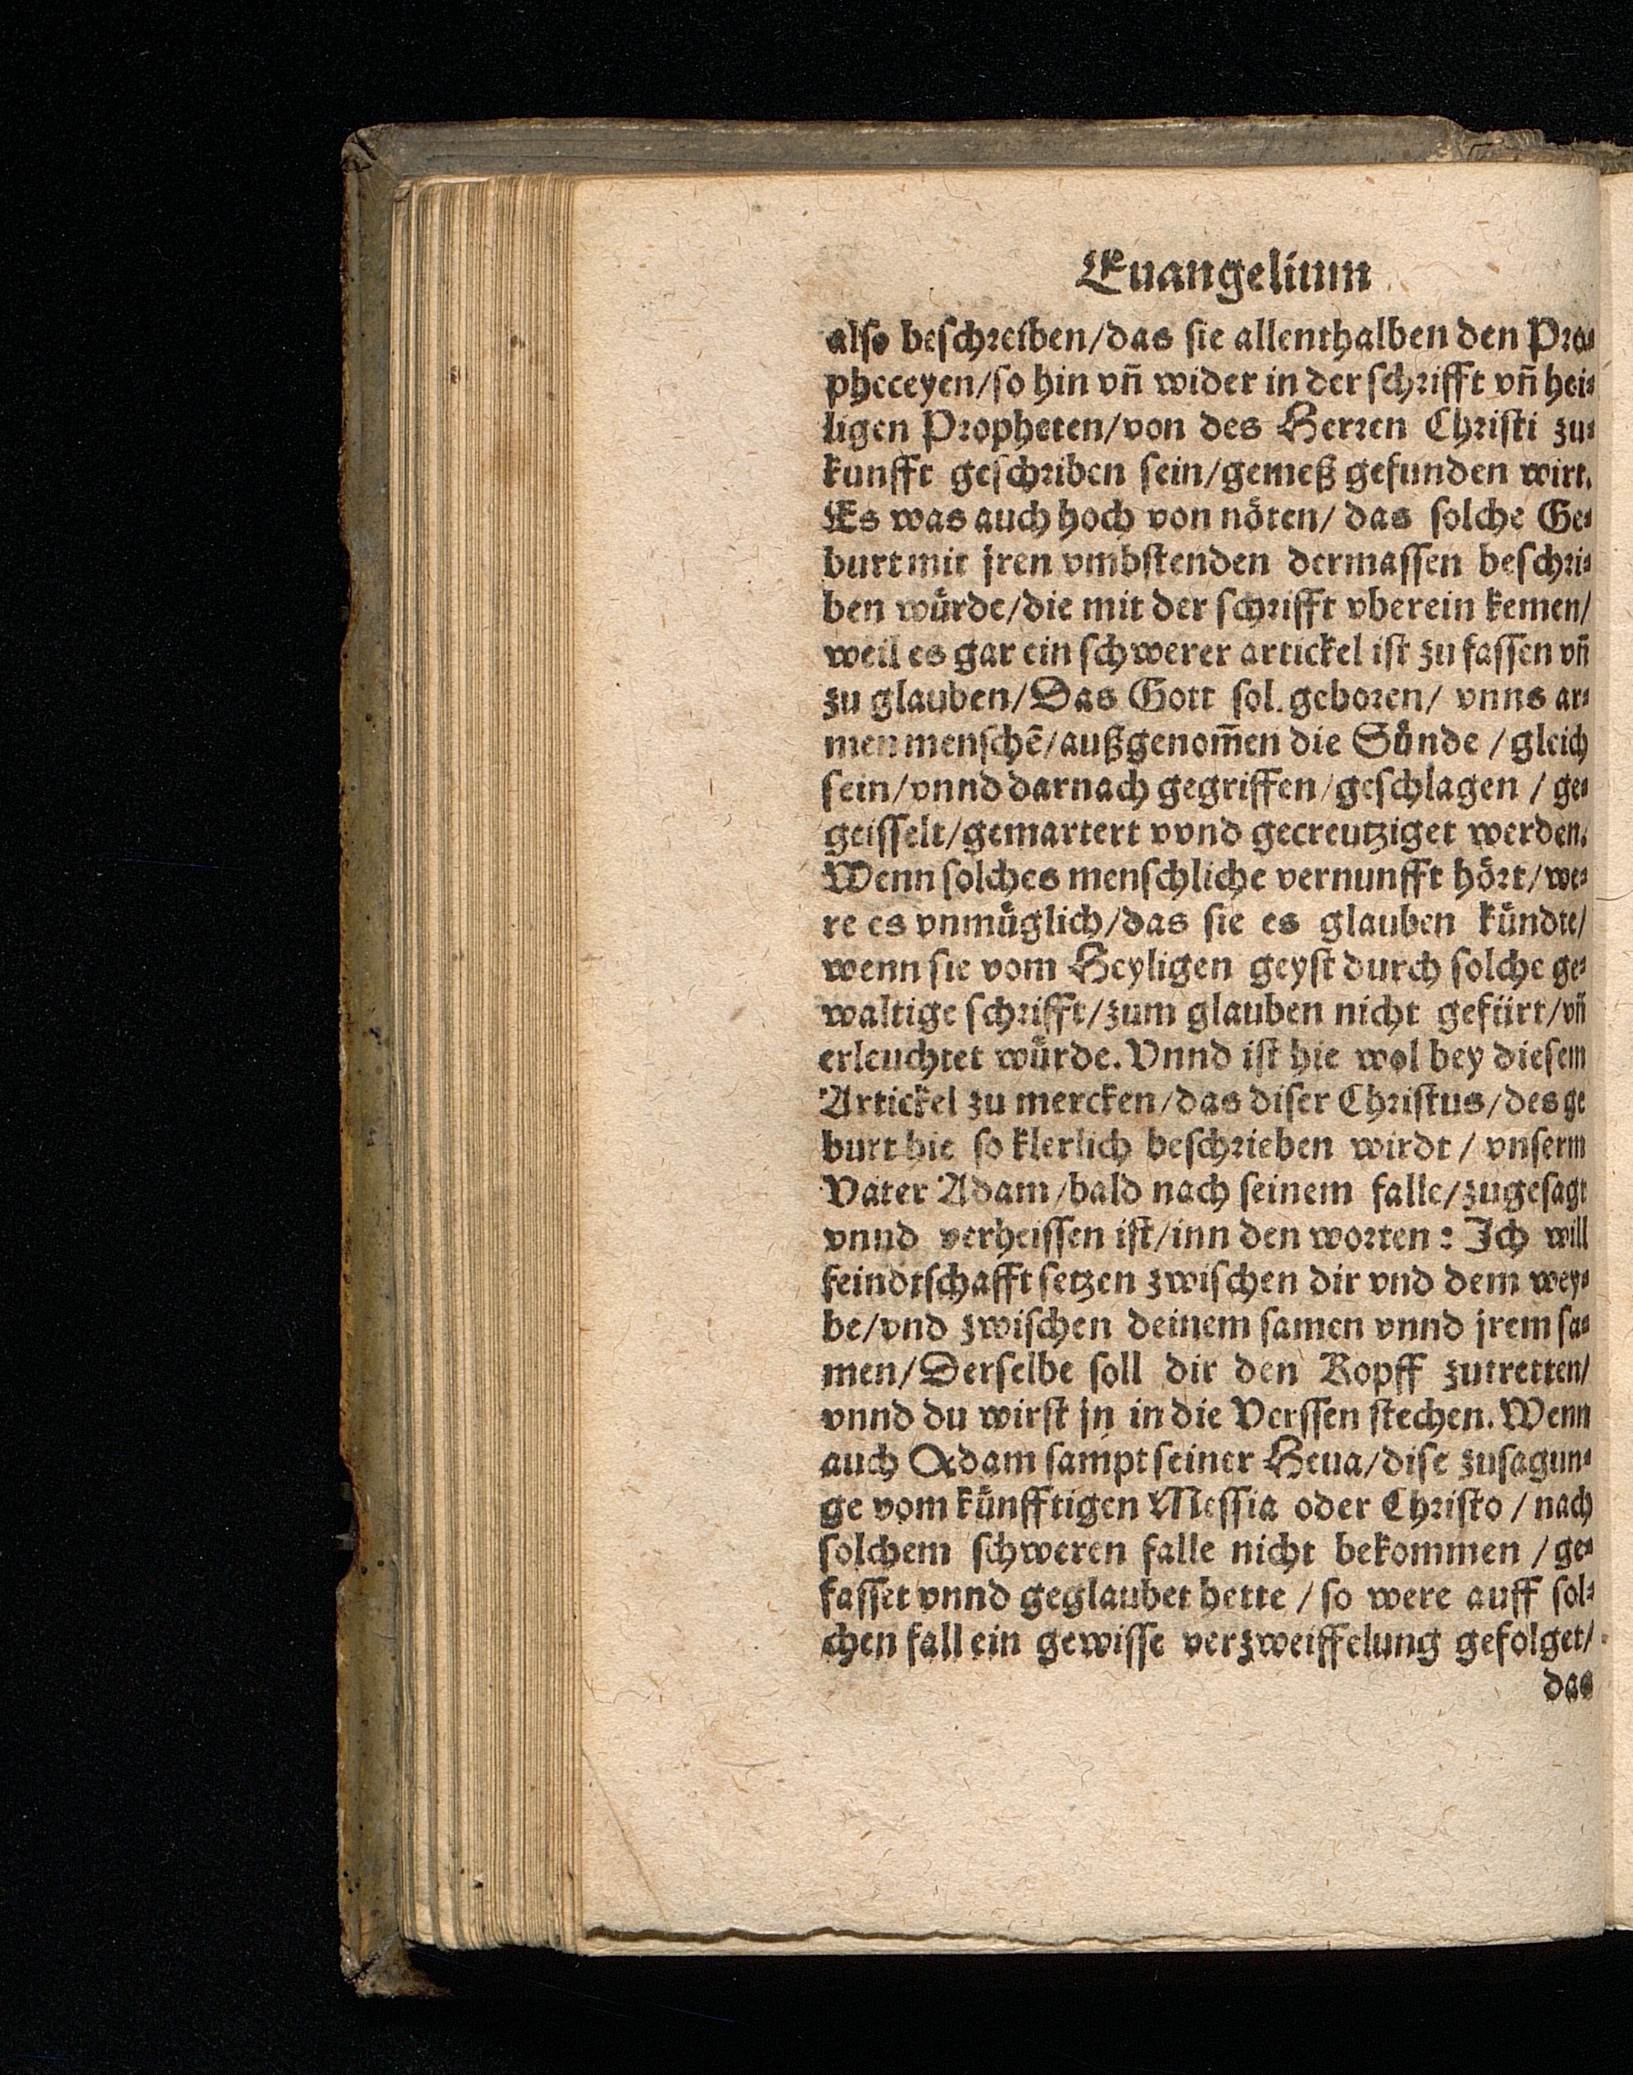 Euangelium
also beschreiben/das sie allenthalben den Pro⸗
pheceyen/so hin vñ wider in der schrifft vñ hei⸗
ligen Propheten/von des Herren Christi zu⸗
kunfft geschriben sein/gemeß gefunden wirt.
Es was auch hoch von nöten/ das solche Ge⸗
burt mit jren vmbstenden dermassen beschri⸗
ben würde/die mit der schrifft vberein kemen/
weil es gar ein schwerer artickel ist zu fassen vñ
zu glauben/Das Gott sol. geboren/ vnns ar⸗
men menschẽ/außgenom̃en die Sünde /gleich
sein/vnnd darnach gegriffen/geschlagen /ge⸗
geisselt/gemartert vvnd gecreutziget werden.
Wenn solches menschliche vernunfft hört/we⸗
re es vnmüglich/das sie es glauben kündte/
wenn sie vom Heyligen geyst durch solche ge⸗
waltige schrifft/zum glauben nicht gefürt/vñ
erleuchtet würde. Vnnd ist hie wol bey diesem
Artickel zu mercken/das diser Christus/des ge
burt hie so klerlich beschrieben wirdt / vnserm
Vater Adam/bald nach seinem falle/zugesagt
vnnd verheissen ist/inn den worten: Ich will
feindtschafft setzen zwischen dir vnd dem wey⸗
be/vnd zwischen deinem samen vnnd jrem sa⸗
men/Derselbe soll dir den Kopff zutretten/
vnnd du wirst jn in die Verssen stechen. Wenn
auch Adam sampt seiner Heua/dise zusagun⸗
ge vom künfftigen Messia oder Christo / nach
solchem schweren falle nicht bekommen /ge⸗
fasset vnnd geglaubet hette / so were auff sol⸗
chen fall ein gewisse verzweiffelung gefolget/
das